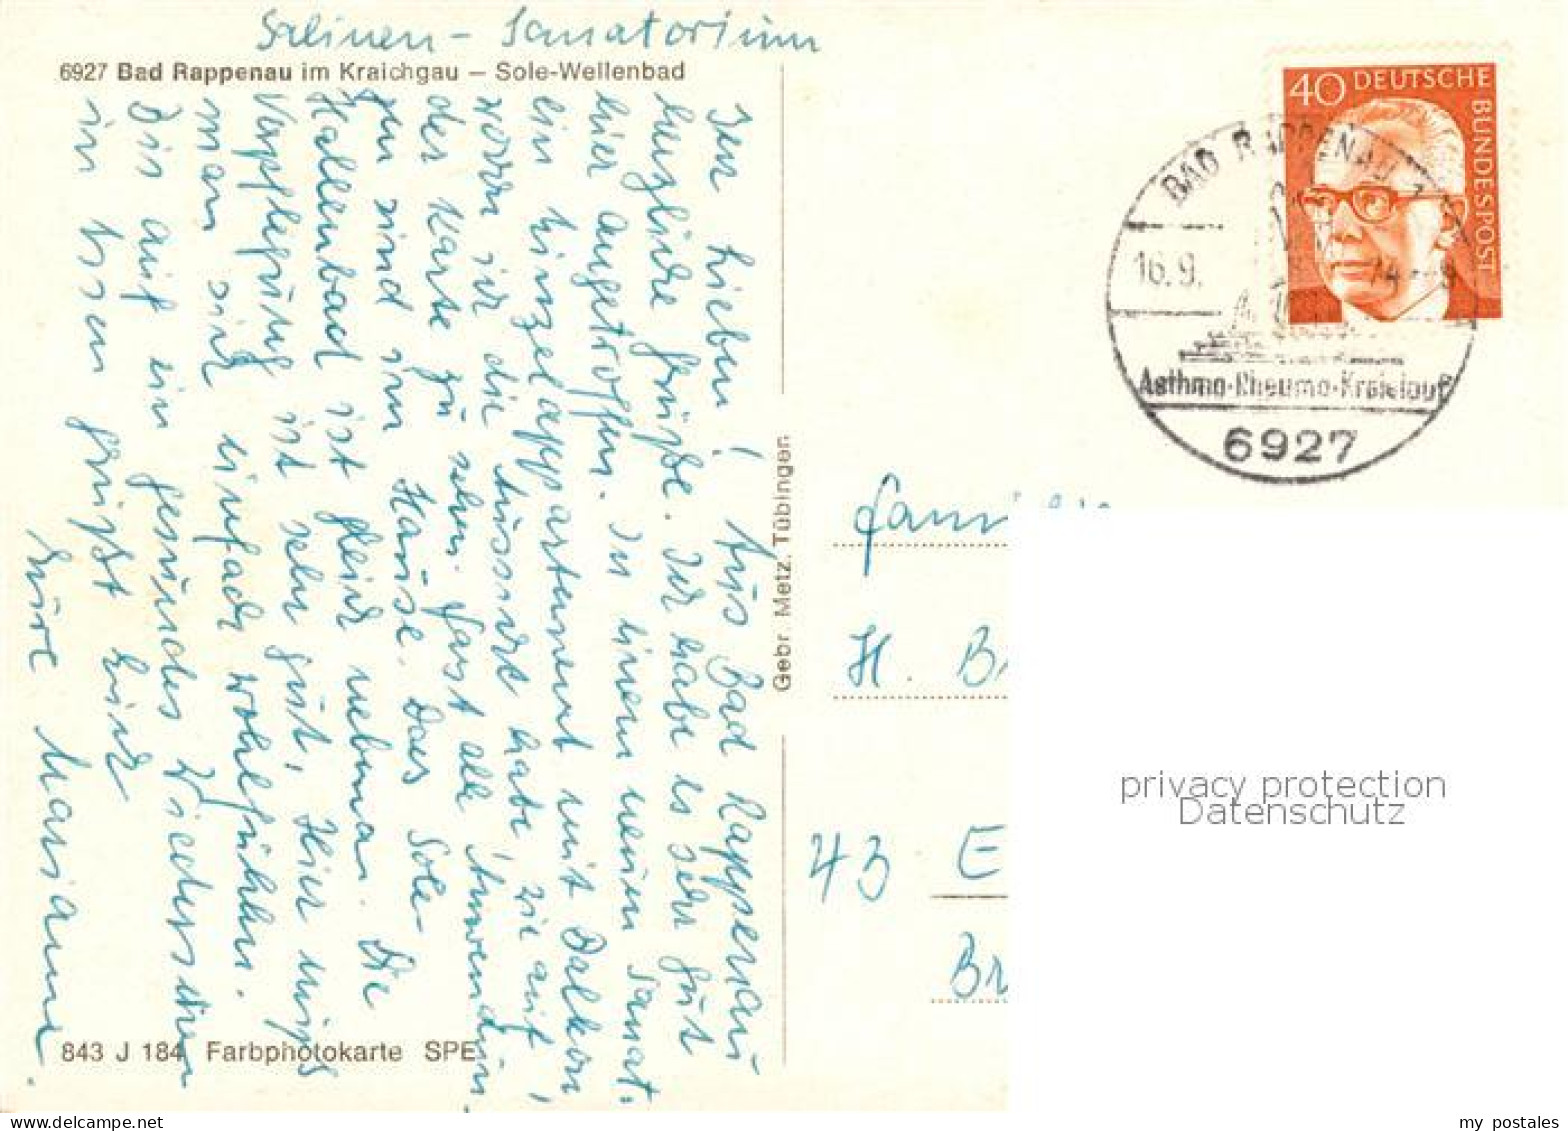 Salinen-Sanatorium
6927 Bad Rappenau im Kraichgau – Sole-Wellenbad
Ihr Lieben! Aus Bad Rappenau
herzliche Grüße. Ich habe es sehr gut
hier angetroffen. In einem neuen Sanat.
ein Einzelappartement mit Balkon
wovon ich die Aussicht habe, die auf
der Karte zu sehen. Fast alle Anwendun
gen sind im Hause. Das Sole-
Hallenbad ist gleich nebenan. Die
Verpflegung ist sehr gut, hier muß
man sich einfach wohlfühlen.
Bis auf ein gesundes Wiedersehen
in Essen grüßt Euch
Eure Marianne.
843 J 184 Farbphotokarte SPE
Gebr. Metz, Tübingen
40 DEUTSCHE
BUNDESPOST
BAD RAPPENAU 1
16.9.
Asthma-Rheuma-Kreislauf
6927
Familie
H. B
43 E
Br
privacy protection
Datenschutz
my postales